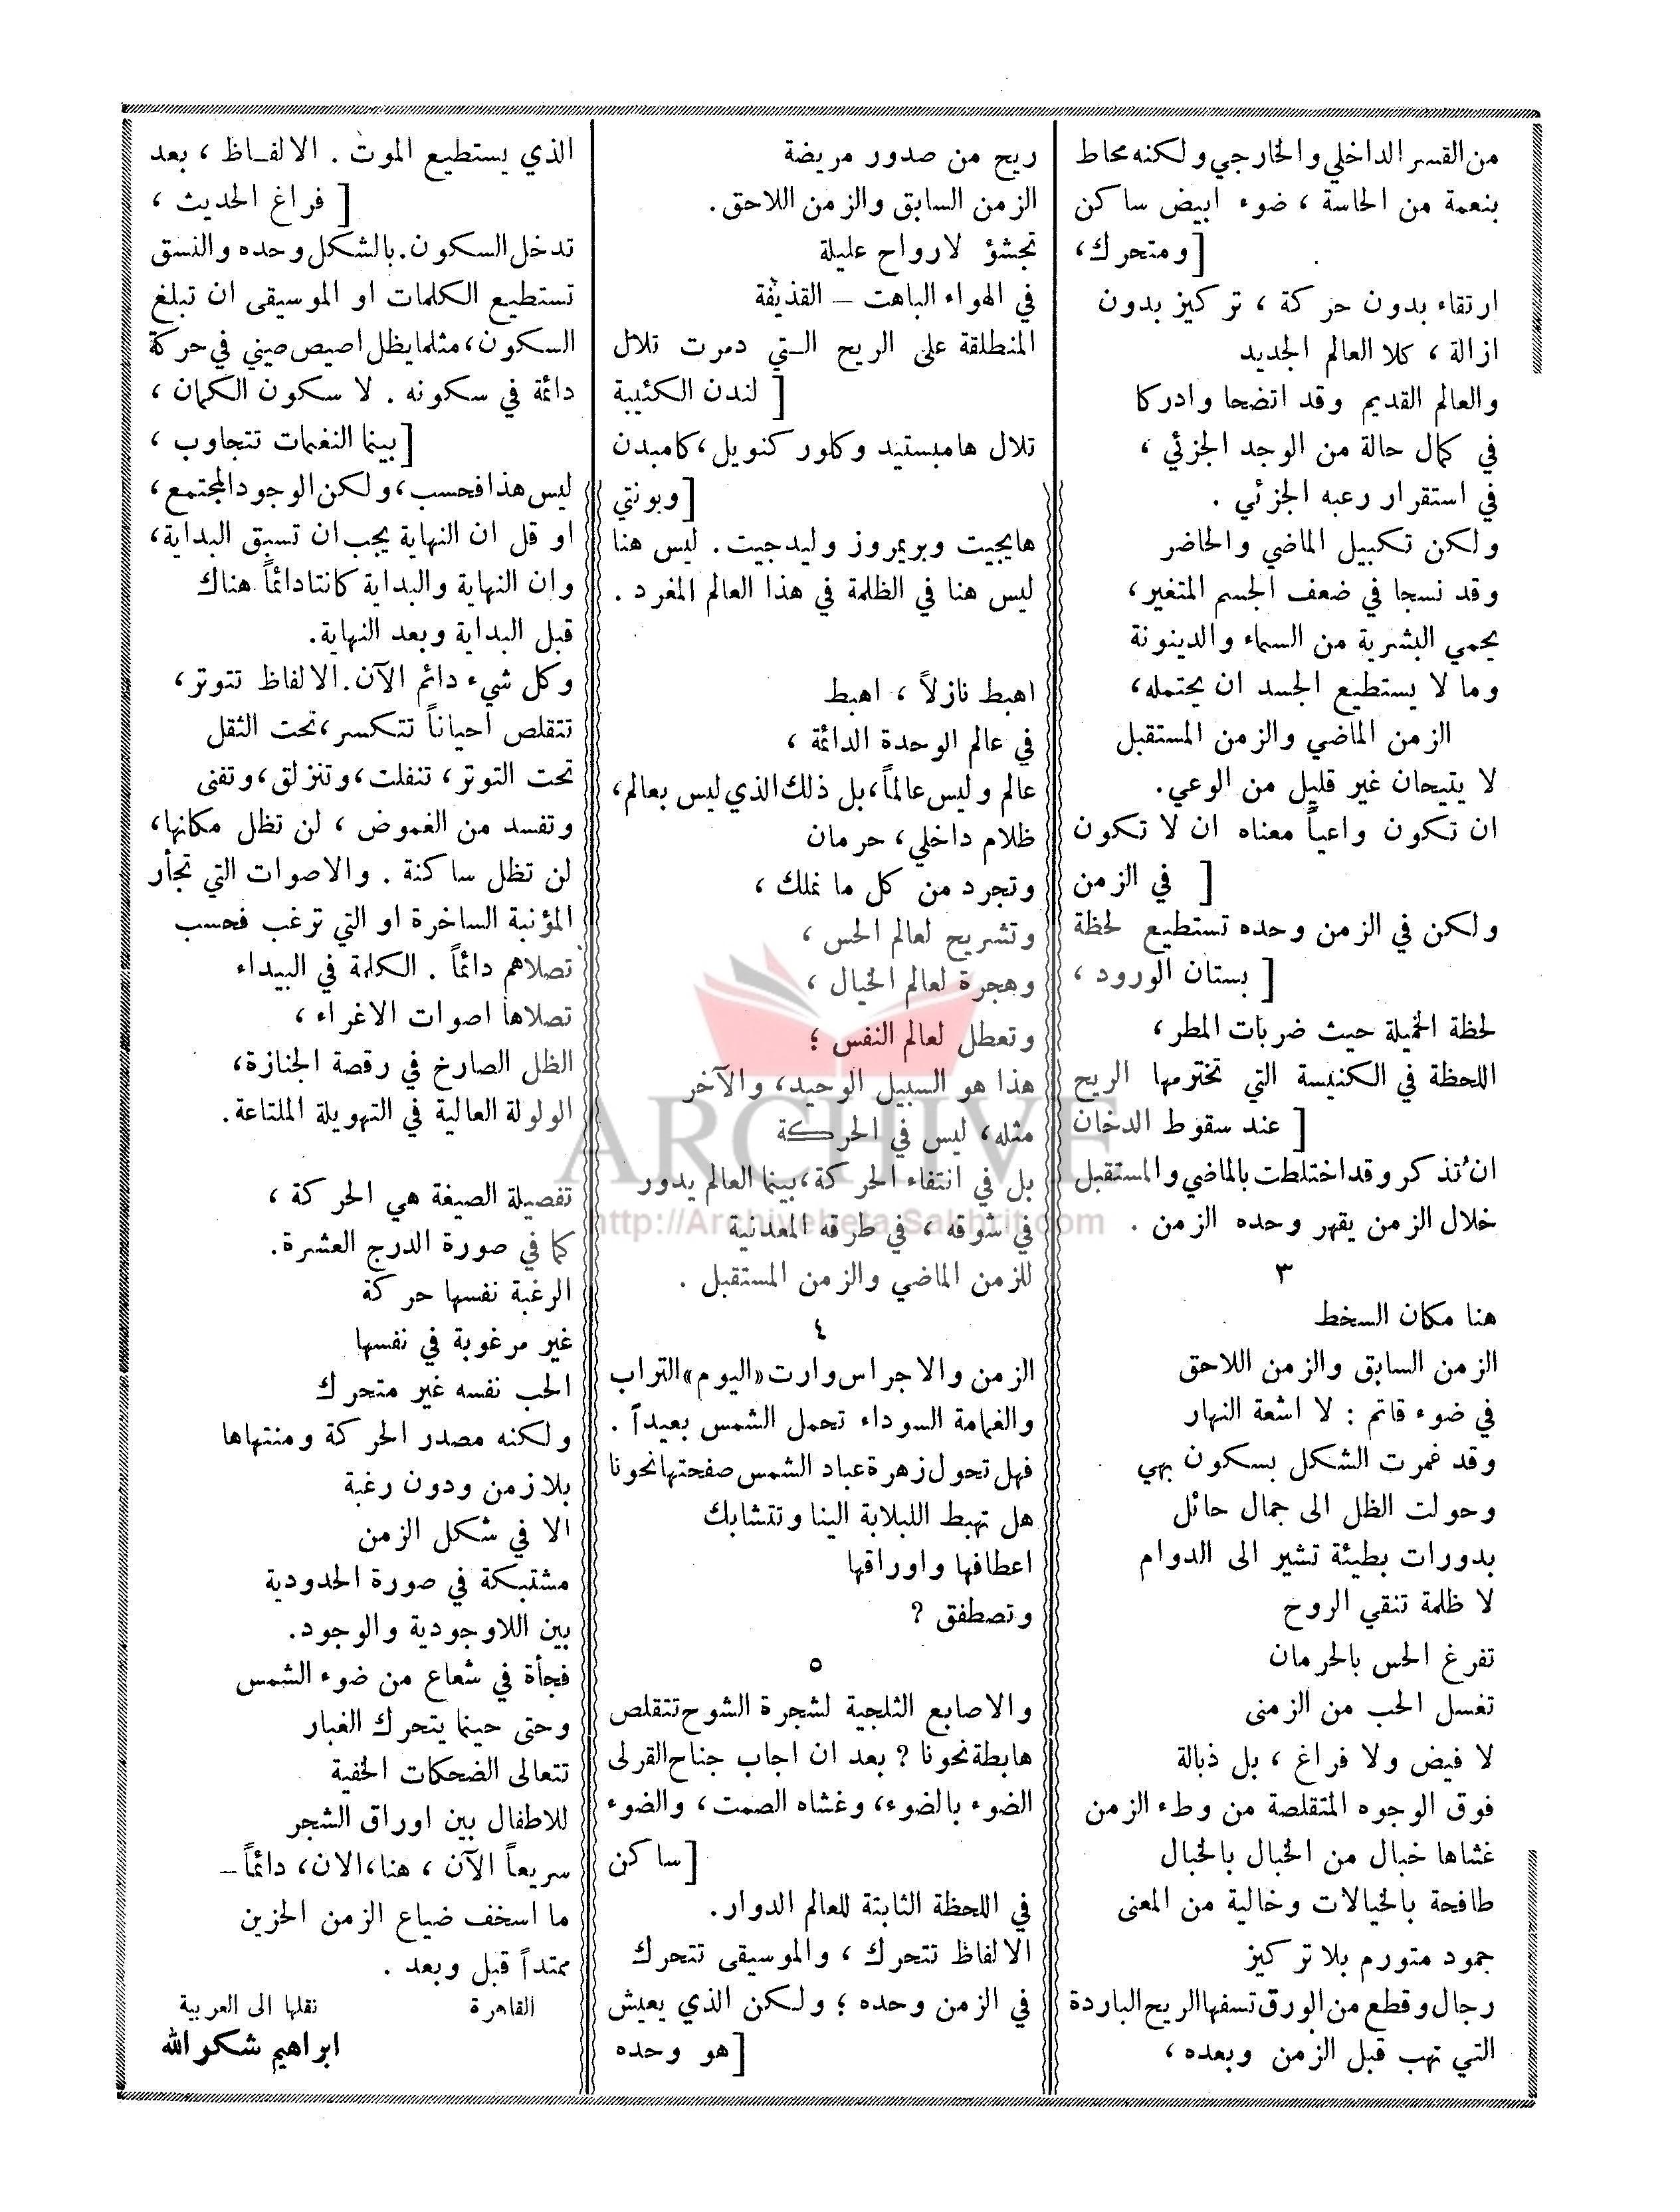 من القسر الداخلي والخارجي ولكنه محاط
بنعمة من الحاسة ، ضوء ابيض ساكن
[ ومتحرك،
ارتقاء بدون حركة ، تركيز بدون
ازالة ، كلا العالم الجديد
والعالم القديم وقد اتضحا وادركا
في كمال حالة من الوجد الجزئي ،
في استقرار رعبه الجزئي .
ولكن تكبيل الماضي والحاضر
وقد نسجا في ضعف الجسم المتغير،
يحمي البشرية من السماء والدينونة
وما لا يستطيع الجسد ان يحتمله،
الزمن الماضي والزمن المستقبل
لا يتيحان غير قليل من الوعي.
ان تكون واعياً معناه ان لا تكون
[ في الزمن
ولكن في الزمن وحده تستطيع لحظة
[ بستان الورود ،
لحظة الخميلة حيث ضربات المطر،
اللحظة في الكنيسة التي تخترمها الريح
[ عند سقوط الدخان
ان تُذكر وقد اختلطت بالماضي والمستقبل
خلال الزمن يقهر وحده الزمن .
٣
هنا مكان السخط
الزمن السابق والزمن اللاحق
في ضوء قاتم : لا اشعة النهار
وقد غمرت الشكل بسكون بهي
وحولت الظل الى جمال حائل
بدورات بطيئة تشير الى الدوام
لا ظلمة تنقي الروح
تفرغ الحس بالحرمان
تغسل الحب من الزمنى
لا فيض ولا فراغ ، بل ذبالة
فوق الوجوه المتقلصة من وطء الزمن
غشاها خبال من الخبال بالخبال
طافحة بالخيالات وخالية من المعنى
جمود متورم بلا تركيز
رجال وقطع من الورق تسفها الريح الباردة
التي تهب قبل الزمن وبعده ،
ريح من صدور مريضة
الزمن السابق والزمن اللاحق.
تجشؤ لارواح عليلة
في الهواء الباهت – القذيفة
المنطلقة على الريح التي دمرت تلال
[ لندن الكئيبة
تلال هامبستيد وكلوركنويل ،كامبدن
[ وبونتي
هايجيت وبريمروز وليدجيت. ليس هنا
ليس هنا في الظلمة في هذا العالم المغرد .
اهبط نازلاً ، اهبط
في عالم الوحدة الدائمة ،
عالم وليس عالماً،بل ذلك الذي ليس بعالم،
ظلام داخلي، حرمان
وتجرد من كل ما نملك ،
وتشريح لعالم الحس ،
وهجرة لعالم الخيال ،
وتعطل لعالم النفس ؛
هذا هو السبيل الوحيد، والآخر
مثله، ليس في الحركة
بل في انتفاء الحركة،بينما العالم يدور
في شوقه ، في طرقه المعدنية
للزمن الماضي والزمن المستقبل .
٤
الزمن والاجراس وارت «اليوم» التراب
والغمامة السوداء تحمل الشمس بعيداً .
فهل تحول زهرة عباد الشمس صفحتها نحونا
هل تهبط اللبلابة الينا وتتشابك
اعطافها واوراقها
وتصطفق ؟
٥
والاصابع الثلجية لشجرة الشوح تتقلص
هابطة نحونا ؟ بعد ان اجاب جناح القرلى
الضوء بالضوء، وغشاه الصمت، والضوء
[ ساكن
في اللحظة الثابتة للعالم الدوار.
الالفاظ تتحرك ، والموسيقى تتحرك
في الزمن وحده ؛ ولكن الذي يعيش
[ هو وحده
الذي يستطيع الموت . الالفـاظ ، بعد
[ فراغ الحديث ،
تدخل السكون.بالشكل وحده والنسق
تستطيع الكلمات او الموسيقى ان تبلغ
السكون،مثلما يظل اصيص صيني في حركة
دائمة في سكونه . لا سكون الكمان ،
[ بينما النغمات تتجاوب ،
ليس هذا فحسب،ولكن الوجود المجتمع،
او قل ان النهاية يجب ان تسبق البداية،
وان النهاية والبداية كانتا دائماً هناك
قبل البداية وبعد النهاية.
وكل شيء دائم الآن.الالفاظ تتوتر،
تتقلص احياناً تتكسر،تحت الثقل
تحت التوتر، تنفلت،وتنزلق،وتفنى
وتفسد من الغموض ، لن تظل مكانها،
لن تظل ساكنة . والاصوات التي تجأر
المؤنبة الساخرة او التي ترغب فحسب
تصلاهم دائماً . الكلمة في البيداء
تصلاها اصوات الاغراء ،
الظل الصارخ في رقصة الجنازة،
الولولة العالية في التهويلة الملتاعة.
تفصيلة الصيغة هي الحركة ،
كما في صورة الدرج العشرة.
الرغبة نفسها حركة
غير مرغوبة في نفسها
الحب نفسه غير متحرك
ولكنه مصدر الحركة ومنتهاها
بلا زمن ودون رغبة
الا في شكل الزمن
مشتبكة في صورة الحدودية
بين اللاوجودية والوجود.
فجأة في شعاع من ضوء الشمس
وحتى حينما يتحرك الغبار
تتعالى الضحكات الخفية
للاطفال بين اوراق الشجر
سريعاً الآن ، هنا،الان، دائماً –
ما اسخف ضياع الزمن الحزين
ممتداً قبل وبعد .
القاهرة
نقلها الى العربية
ابراهيم شكرالله
ARCHIVE
http://Archivebeta.Sakhrit.com